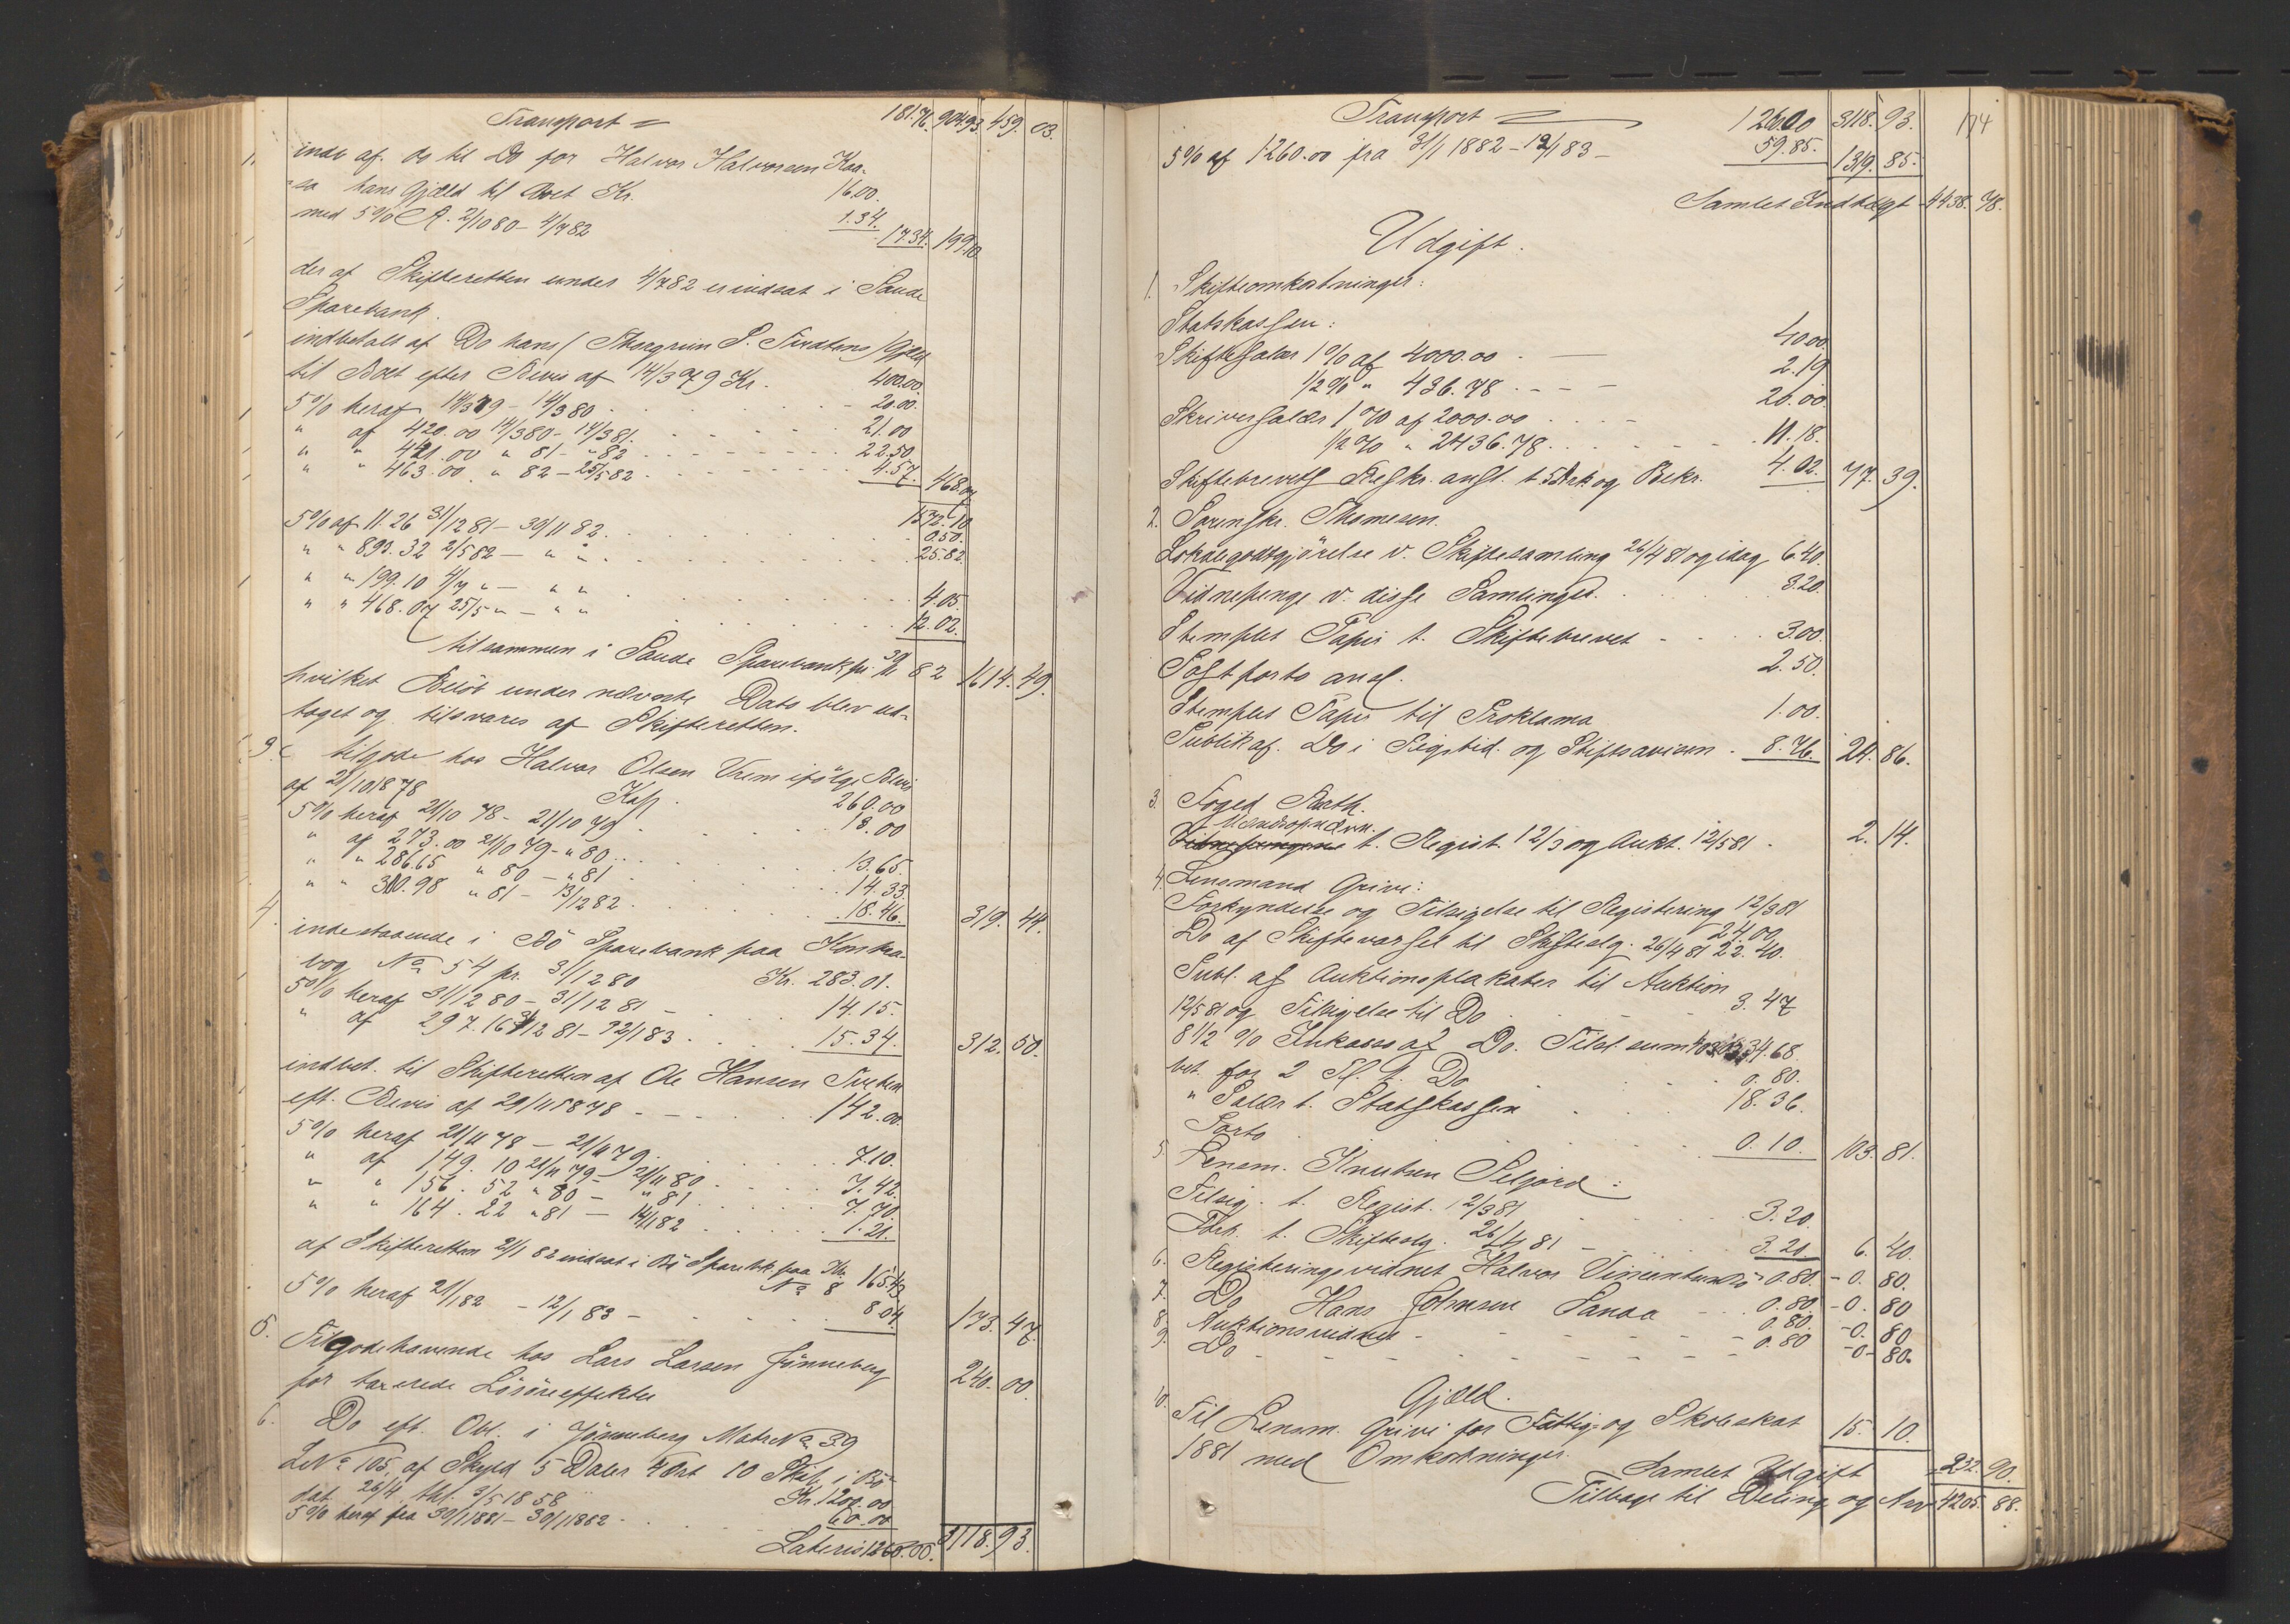 Transport = 181.76. 904.93. 459. 03.
indb af. do til Do for Halvor Halvorsen Kaa-
sa hans Gjæld til Boet Kr. 16.00.
med 5 % A. 2/10 80 - 4/7 82 1.34. 17.34. 199.10
der af Skifteretten under 4/7 82 er indsat i Saude
Sparebank.
indbetalt af Do hans (Thorgrim S. ) Gjæld
til Boet efter Bevis af 14/3 79 Kr. 400.00
5 % heraf 14/3 79 - 14/3 80 . . . 20.00.
" af 420.00 14/3 80 - 14/3 81. . . . 21.00
" " 441.00 " 81 - " 82 . . . 22.50.
" " 463.00 " 82 - 25/5 82 . . . 4.57. 468.07
1572.10
5 % af 11.26 31/12 81 - 30/11 82 . . . 0.50.
" " 893.32 2/5 82 - " " . . . 25.82
" " 199.10 4/7 " - " " . . . 4.05.
" " 468.07 25/5 " - " " . . . 12.02.
tilsammen i Saude Sparebank pr. 30/11 82 1614. 49.
hvilket Beløb under nævnte Dato blev ud-
taget og tilsvares af Skifteretten.
3. tilgode hos Halvor Olsen Vrem ifølge Bevis
af 21/10 1878 Kap. 260.00
5 % heraf 21/10 78 - 21/10 79 . . . 13.00
" af 273.00 21/10 79 - " 80 . . . 13.65.
" " 286.65 " 80 - " 81 . . . 14.33.
" " 300.98 " 81 - 13/12 82 . . . 18.46. 319. 44.
4. indestaaende i Bø Sparebank paa Kontra-
bog No 54 pr. 31/12 80 Kr. 283.01.
5 % heraf 31/12 80 - 31/12 81 - 14.15.
" af 297.16 31/12 81 - 12/1 83 . . . 15.34. 312. 50.
indbet. til Skifteretten af Ole Hansen
eft. Bevis af 21/11 1878 - 142.00.
5 % heraf 21/11 78 - 21/11 79 . . . 7.10.
" af 149.10 21/11 79 - 21/11 80 . . . 7.42.
" " 156.52 " 80 - " 81 . . . 7.70.
" " 164.22 " 81 - 14/1 82 . . . 1.21.
af Skifteretten 21/1 82 indsat i Bø Sparebk. paa Ktr. No 8 165.43
5 % heraf 21/1 82 - 12/1 83 - 8.04. 173. 47.
5. Tilgodehavende hos Lars Larsen Jønneberg
for Løsøreeffekter 240. 00.
6. Do eft. Obl. i Jønneberg Matr No 39
L No 105, af Skyld 5 Daler 4 Ort 10 Skil. i Bø
dat. 26/4 thl. 3/5 1858 Kr. 1200.00
5 % heraf fra 30/1 1881 - 30/1 1882 . . . 60.00
Lateris 1260.00. 3118. 93.
Transport = 1260.00 3118. 93. 174
5 % af 1260.00 fra 31/1 1882 - 12/1 83 - 59.85. 1319. 85.
Samlet Indtægt 4438. 78.
Udgift.
1. Skifteomkostninger:
Statskassen:
Skiftesalær 1 % af 4000.00 - 40.00.
1/2 % " 436.78 - - - 2.19
Skriversalær 1 % af 2000.00 20.00.
1/2 % " 2436.78 . . . 11.18.
Skiftebrevets Beskr. ansl. t. 5 Ark og Bekr. 4.02. 77. 39.
2. Sorenskr. Thomesen.
Lokalegodtgjørelse v. Skiftesamling 26/4 81 og idag 6.40.
Vidnepenge v. disse Samlinger . . . 3.20.
Stemplet Papir t. Skiftebrevet - - 3.00.
Postporto ansl. 2.50.
Stemplet Papir til Proklama 1.00.
Publik af. Do i Rigstid. og Stiftsavisen . 8.76. 24. 86.
3. Foged Barth.
Mændsopnævn.
Vidnepengene t. Regist. 12/3 og Aukt. 12/5 81 . 2. 14.
4. Lensmand Grivi:
Forkyndelse og Tilsigelse til Registering 12/3 81 24.00
Do af Skiftevarsel til Skiftedlg. 26/4 81 22.40.
Publ. af Auktionsplakater til Auktion
12/5 81 og Tilsigelse til Do . . . 3.47
8 1/2 % Inkasso af Do. Tilsl. sum 34.68.
bet. for 2 Do . . . 0.80.
" Salær t. Statskassen . . . 18.36.
Porto . . . 0.10. 103. 81.
5. Lensm. Knutsen Seljord:
Tilsig. t. Regist. 12/3 81 . . . 3.20.
Fork. t. Skiftedlg. 26/4 81 - 3.20. 6. 40.
6. Registeringsvidnet Halvor 0.80. - 0. 80.
7. Do Hans Johnsen Sanda - 0.80. - 0. 80
8. Auktionsvidnet - - - 0.80. - 0. 80
9. Do - - - 0.80 - 0 - 80.
Gjæld.
10. Til Lensm. Grivi for Fattig- og Skoleskat
1881 med Omkostninger. 15. 10.
Samlet Udgift 232. 90.
Tilbage til Deling og Arv 4205. 88.